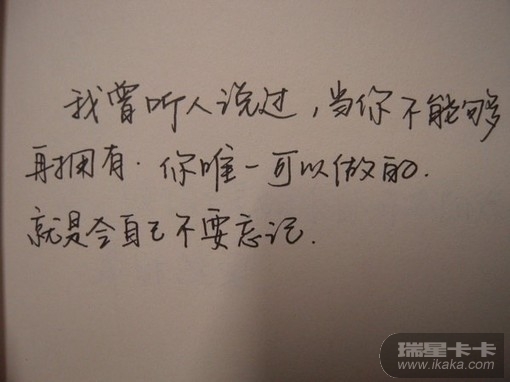 我曾听人说过，当你不能够
再拥有．你唯一可以做的．
就是令自己不要忘记．
瑞星卡卡
www.ikaka.com